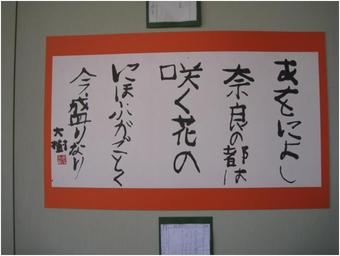 あをによし
奈良の都は
咲く花の
にほふがごとく
今盛りなり
大樹